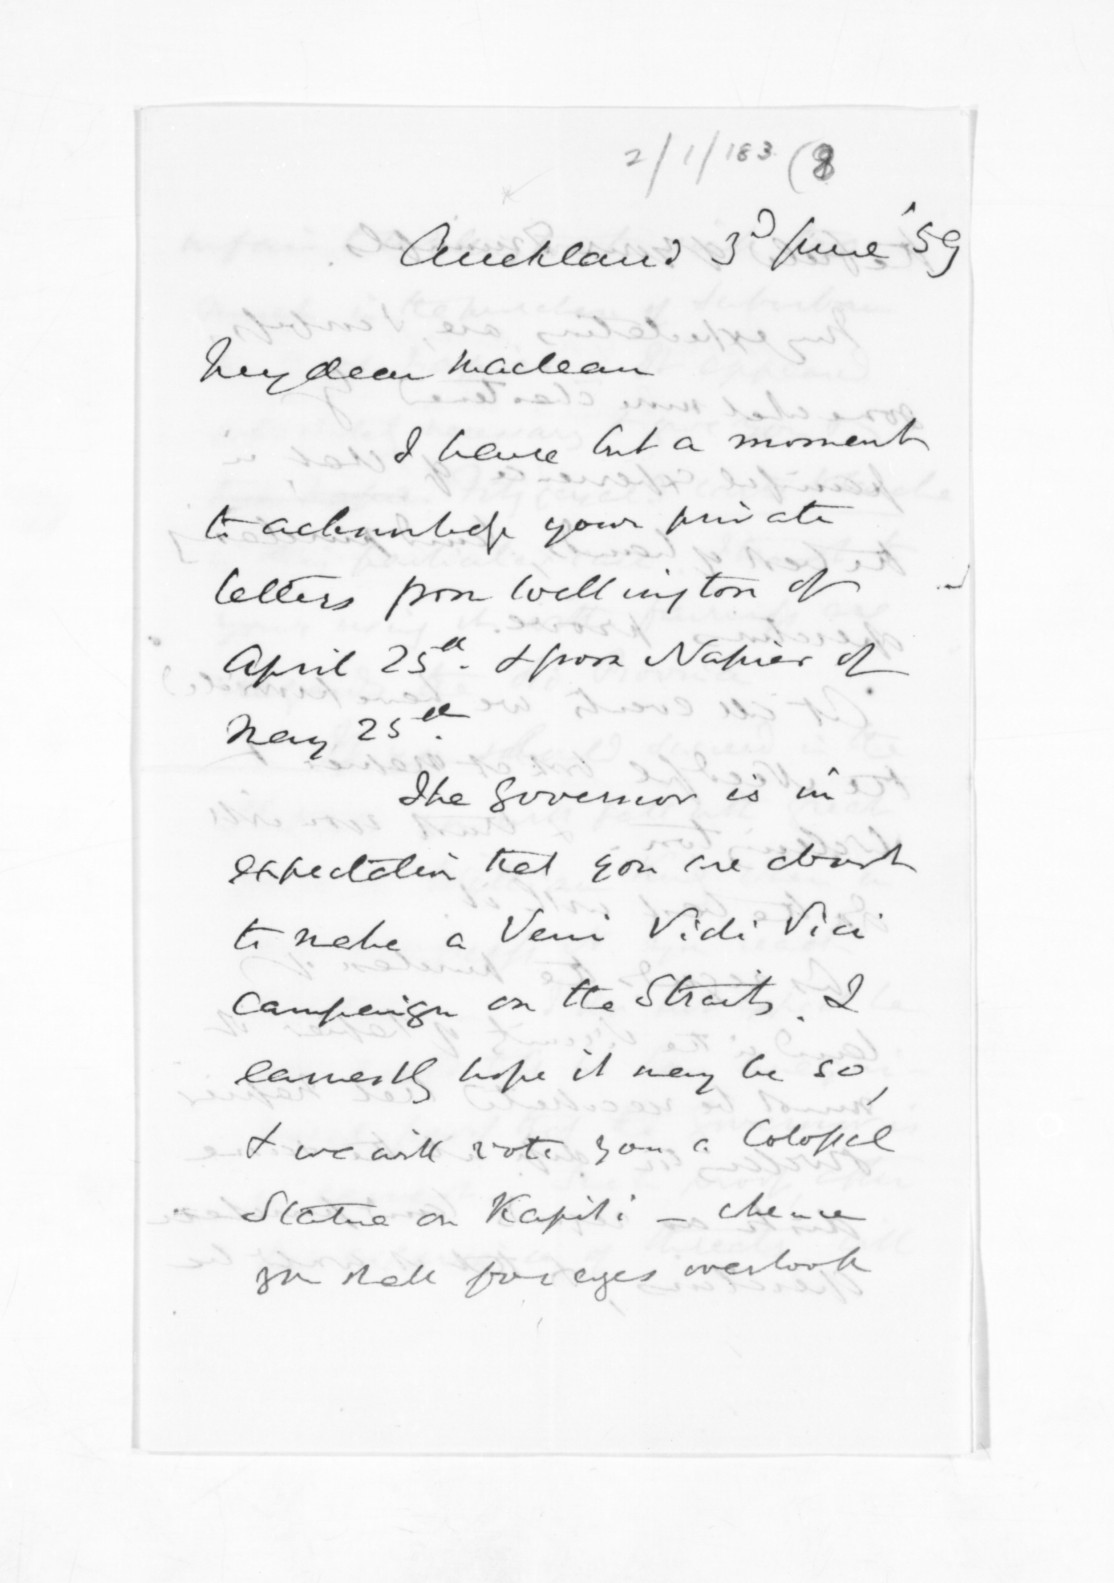 2/1/183 (8
Auckland 3d June '59
My dear Maclean
I have but a moment
to acknowledge your private
letters from Wellington of
April 25th. & from Napier of
May 25th.
The Governor is in
expectation that you are about
to make a Veni Vidi Vici
Campaign on the Straits. I
earnestly hope it may be so,
& we will vote you a Colossal
Statue on Kapiti – whence
you shall for eyes overlook